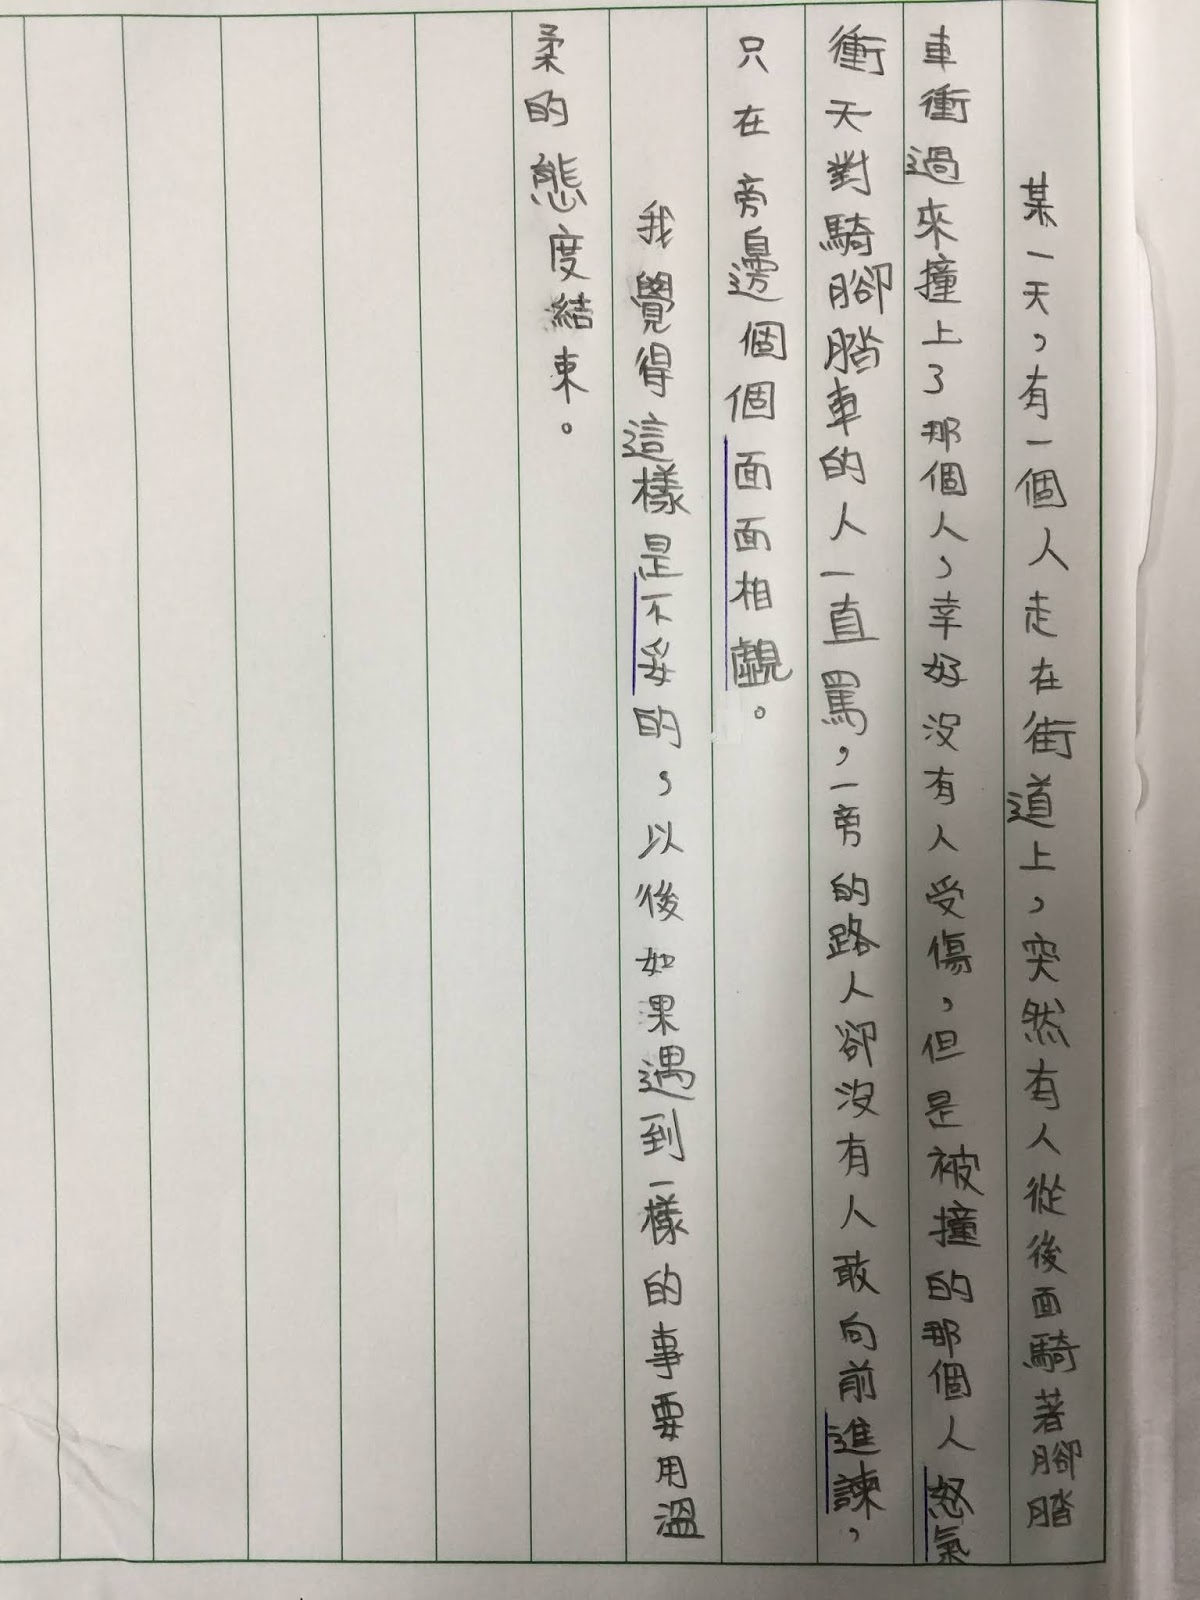 某一天，有一個人走在街道上，突然有人從後面騎著腳踏
車衝過來撞上了那個人，幸好沒有人受傷，但是被撞的那個人怒氣
衝天對騎腳踏車的人一直罵，一旁的路人卻沒有人敢向前進諫，
只在旁邊個個面面相覷。
我覺得這樣是不妥的，以後如果遇到一樣的事要用溫
柔的態度結束。